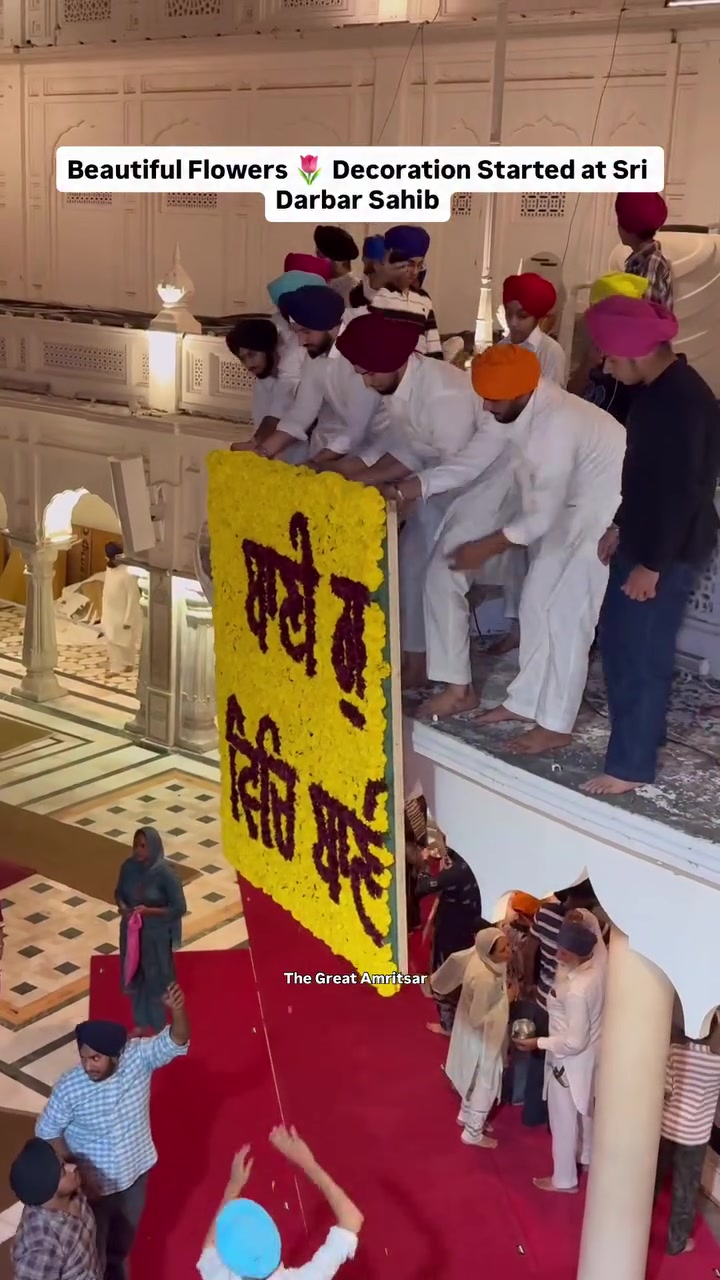 Beautiful Flowers 🌷 Decoration Started at Sri
Darbar Sahib
ਬਾਣੀ ਗੁ
ਵਿਚਿ ਬਾਣੀ
The Great Amritsar